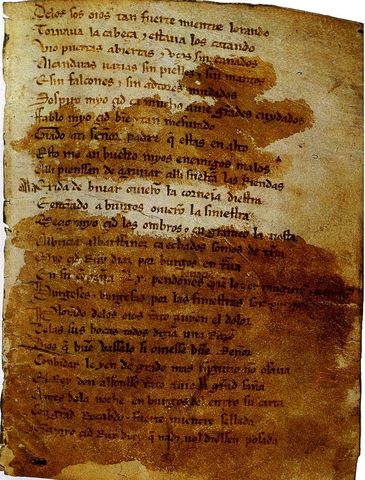 Delos sos oios tan fuerte mientre lorando
Tornaua la cabeça & estaua los catando
Vio puertas abiertas & vços sin cañados
Alcandaras uazias sin pielles & sin mantos
E sin falcones & sin adtores mudados
Sospiro myo çid ca mucho auie grãdes cuydados
Fablo myo çid biẽ & tan mesurado
Grado ati señor padre q̃ estas en alto
Esto me an buelto myos enemigos malos
Alli pienssan de aguiiar alli sueltã las Riendas
Ala exida de biuar ouierõ la corneia diestra
E entrãdo a burgos ouierõ la siniestra
Meçio myo çid los ombros & engrameo la tiesta
Albriçia albarffanez ca echados somos de tierra
Myo çid Ruy diaz por burgos entraua
En su conpaña .Lx. pendones
Burgeses & burgesas por las finiestras son
Plorãdo delos oios tãto auien el dolor
Delas sus bocas todos dizian una Razõ
Dios q̃ buẽ vassalo si ouiesse buẽ Señor
Conbidar le yen de grado mas ninguno nõ osaua
El Rey don alfonsso tãto auie la grãd saña
Antes dela noche en burgos del entro su carta
Cõ grãd Recabdo & fuerte mientre sellada
Que a myo çid Ruy diaz q̃ nadi nol diessen posada